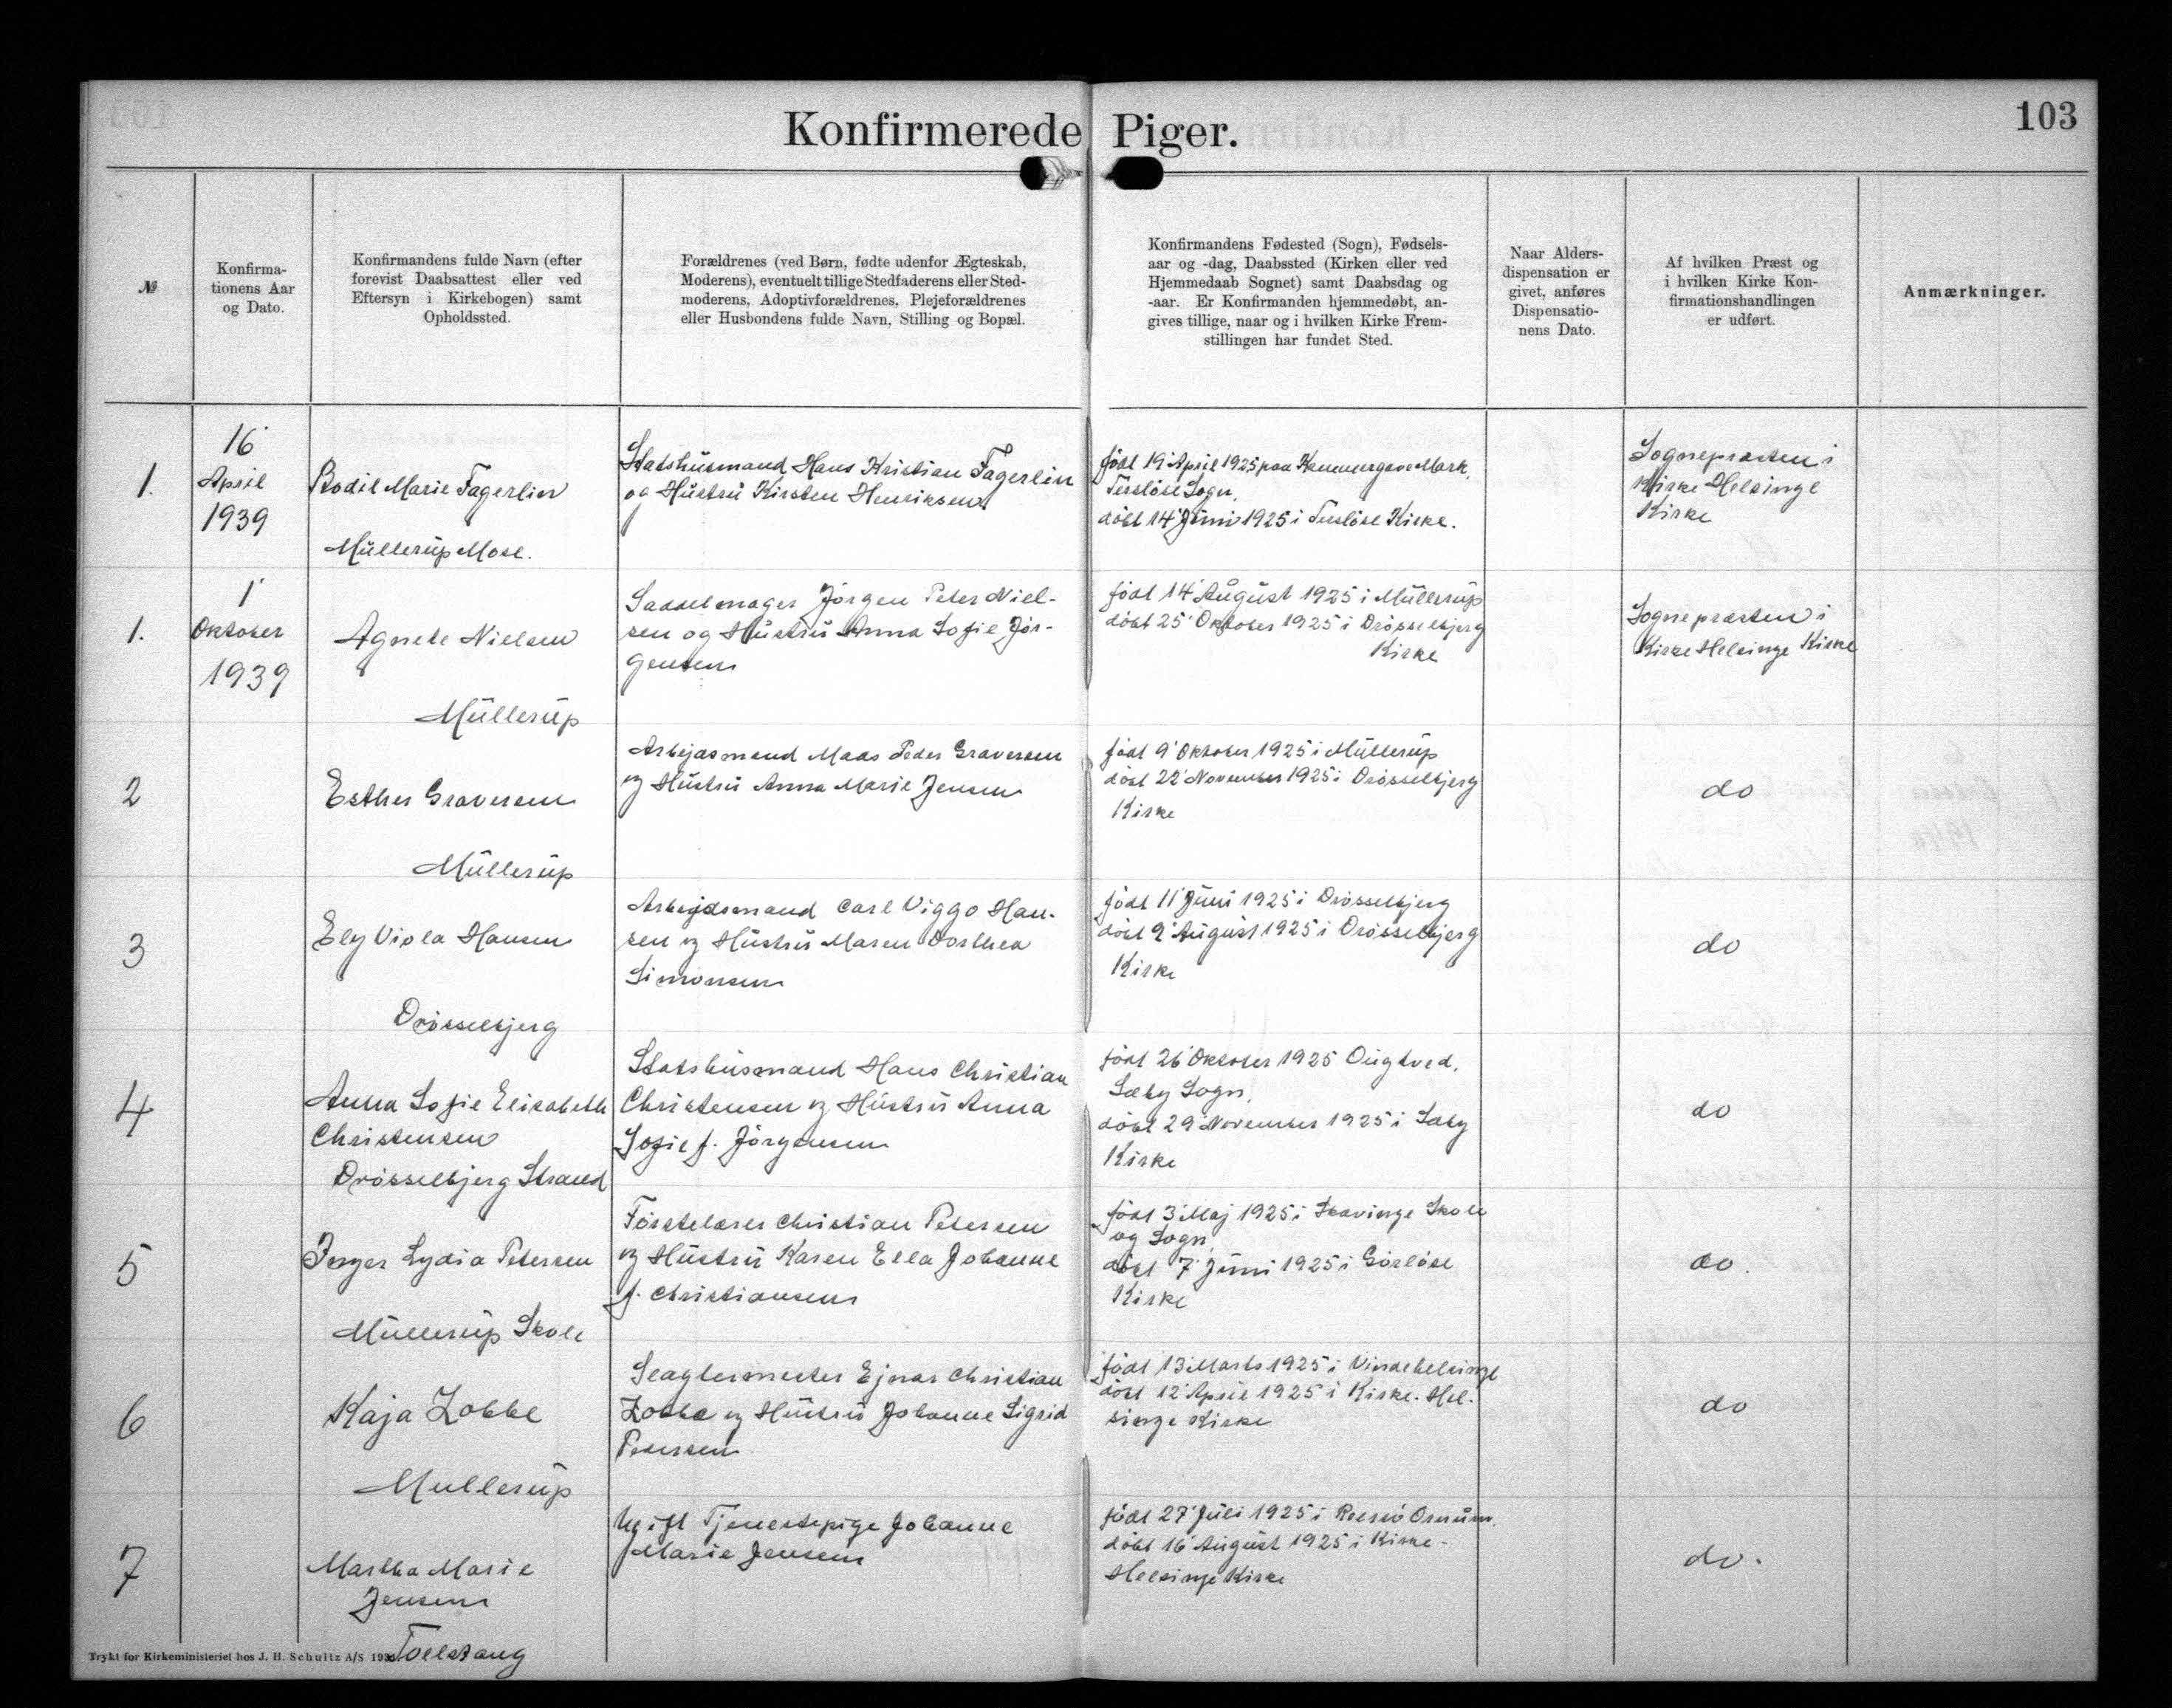 Konfirmerede Piger.
103
№
Konfirma-
tionens Aar
og Dato.
Konfirmandens fulde Navn (efter
forevist Daabsattest eller ved
Eftersyn i Kirkebogen) samt
Opholdssted.
Forældrenes (ved Børn, fødte udenfor Ægteskab,
Moderens), eventuelt tillige Stedfaderens eller Sted-
moderens, Adoptivforældrenes, Plejeforældrenes
eller Husbondens fulde Navn, Stilling og Bopæl.
Konfirmandens Fødested (Sogn), Fødsels-
aar og -dag, Daabssted (Kirken eller ved
Hjemmedaab Sognet) samt Daabsdag og
-aar. Er Konfirmanden hjemmedøbt, an-
gives tillige, naar og i hvilken Kirke Frem-
stillingen har fundet Sted.
Naar Alders-
dispensation er
givet, anføres
Dispensatio-
nens Dato.
Af hvilken Præst og
i hvilken Kirke Kon-
firmationshandlingen
er udført.
Anmærkninger.
1.
16
April
1939
Bodil Marie Fagerlin
Müllerup Mose.
Statshusmand Hans Kristian Fagerlin
og Hustru Kirsten Henriksen
født 19 April 1925 paa Kammergave Mark,
Terslöse Sogn,
döbt 14 Juni 1925 i Terslöse Kirke.
Sognepræsten i
Kirke Helsinge
Kirke
1.
1
Oktober
1939
Agnete Nielsen
Müllerup
Sadelmager Jörgen Peter Niel-
sen og Hustru Anna Sofie Jör-
gensen
född 14 August 1925 i Müllerup
döbt 25 Oktober 1925 i Drösselbjerg
Kirke
Sognepræsten i
Kirke Helsinge Kirke
2
Esther Graversen
Müllerup
Arbejdsmand Mads Peder Graversen
og Hustru Anna Marie Jensen
födt 9 Oktober 1925 i Müllerup
döbt 22 November 1925 i Drösselbjerg
Kirke
do
3
Ely Viola Hansen
Drösselbjerg
Arbejdsmand Carl Viggo Han-
sen og Hustru Maren Dorthea
Simonsen
födt 11 Juni 1925 i Drösselbjerg
döbt 9 August 1925 i Drösselbjerg
Kirke
do
4
Anna Sofie Elisabeth
Christensen
Drösselbjerg Strand
Statshusmand Hans Christian
Christensen og Hustru Anna
Sofie f. Jörgensen
födt 26 Oktober 1925 Ougtved,
Sæby Sogn,
döbt 29 November 1925 i Sæby
Kirke
do
5
Inger Lydia Petersen
Müllerup Skole
Förstelærer Christian Petersen
og Hustru Karen Ella Johanne
f. Christiansen
födt 3 Maj 1925 i Bakkendrup Skole
og Sogn,
döbt 7 Juni 1925 i Görlöse
Kirke
do.
6
Kaja Lobbe
Mullerup
Slagtermester Ejnar Christian
Lobbe og Hustru Johanne Sigrid
Petersen
födt 13 Marts 1925 i Vindehelsinge
döbt 12 April 1925 i Kirke-Hel-
singe Kirke
do
7
Martha Marie
Jensen
Tjenestepige Johanne
Marie Jensen
födt 27 Juli 1925 i Reersö
döbt 16 August 1925 i Kirke-
Helsinge Kirke
do.
Trykt for Kirkeministeriet hos J. H. Schultz A/S